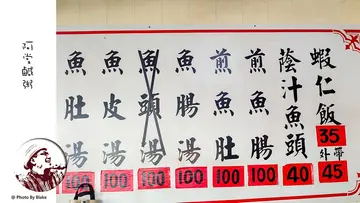 蝦仁飯 35
外帶 45
蔭汁魚頭 40
煎魚腸 100
煎魚肚 100
魚腸湯 100
魚頭湯 100
魚皮湯 100
魚肚湯 100
阿堂鹹粥
@ Photo By Blake